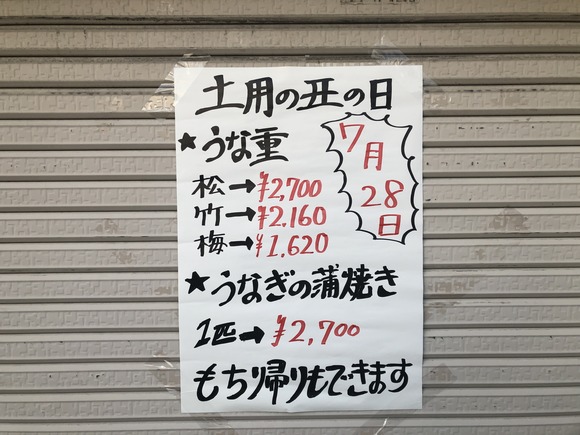 土用の丑の日
7月28日
★うな重
松→¥2,700
竹→¥2,160
梅→¥1,620
★うなぎの蒲焼き
1匹→¥2,700
もち帰りもできます